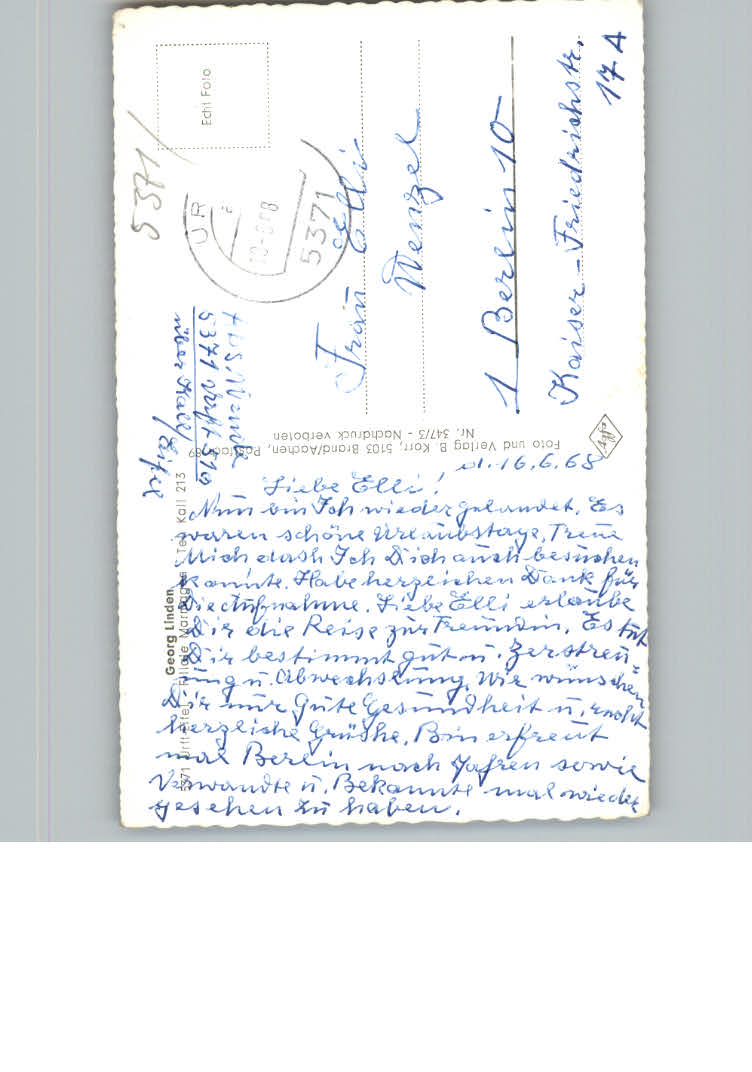 d. 16.6.68
Liebe Elli!
Nun bin Ich wieder gelandet. Es
waren schöne Urlaubstage, Freue
Mich dash Ich Dich auch besuchen
konnte. Habe herzlichen Dank für
Die Aufnahme. Liebe Elli erlaube
Dir die Reise zur Freundin. Es tut
Dir bestimmt gut u. Zerstreu=
ung u. Abwechslung. Wir wünschen
Dir nur Gute Gesundheit u. recht
herzliche Grüshe. Bin erfreut
mal Berlin nach Jahren sowie
Verwandte u. Bekannte mal wieder
gesehen zu haben.
Abs.
5371 Urft 519
über Kall/Eifel
5371
Echt Foto
UR
5371
Frau Elli
Wenzel
1 Berlin 10
Kaiser-Friedrichstr.
17 A
Georg Linden
5371 Urft-Eifel Filiale Tel. Kall 213
Foto und Verlag B. Korr, 5103 Brand/Aachen, Postfach 89
Nr. 347/3 - Nachdruck verboten
Agfa